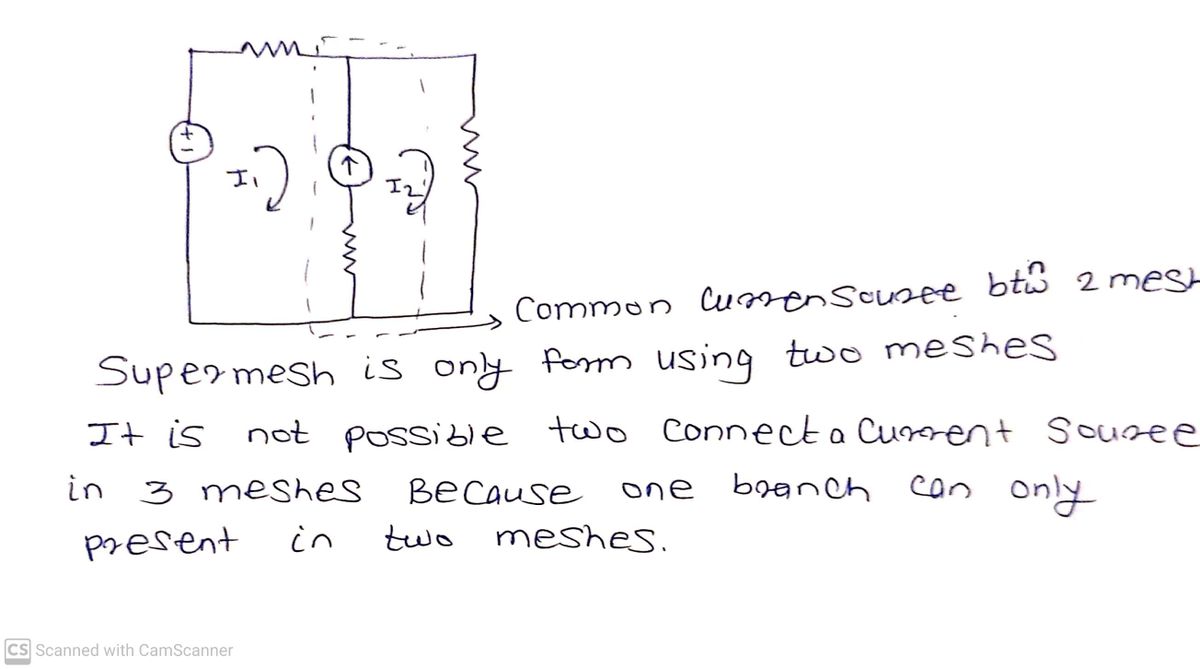 +
I1
I2
Common Curren Source btw̑n 2 mesh
Supermesh is only form using two meshes
It is not possible two Connect a Current Source
in 3 meshes Because one branch can only
present in two meshes.
CS Scanned with CamScanner